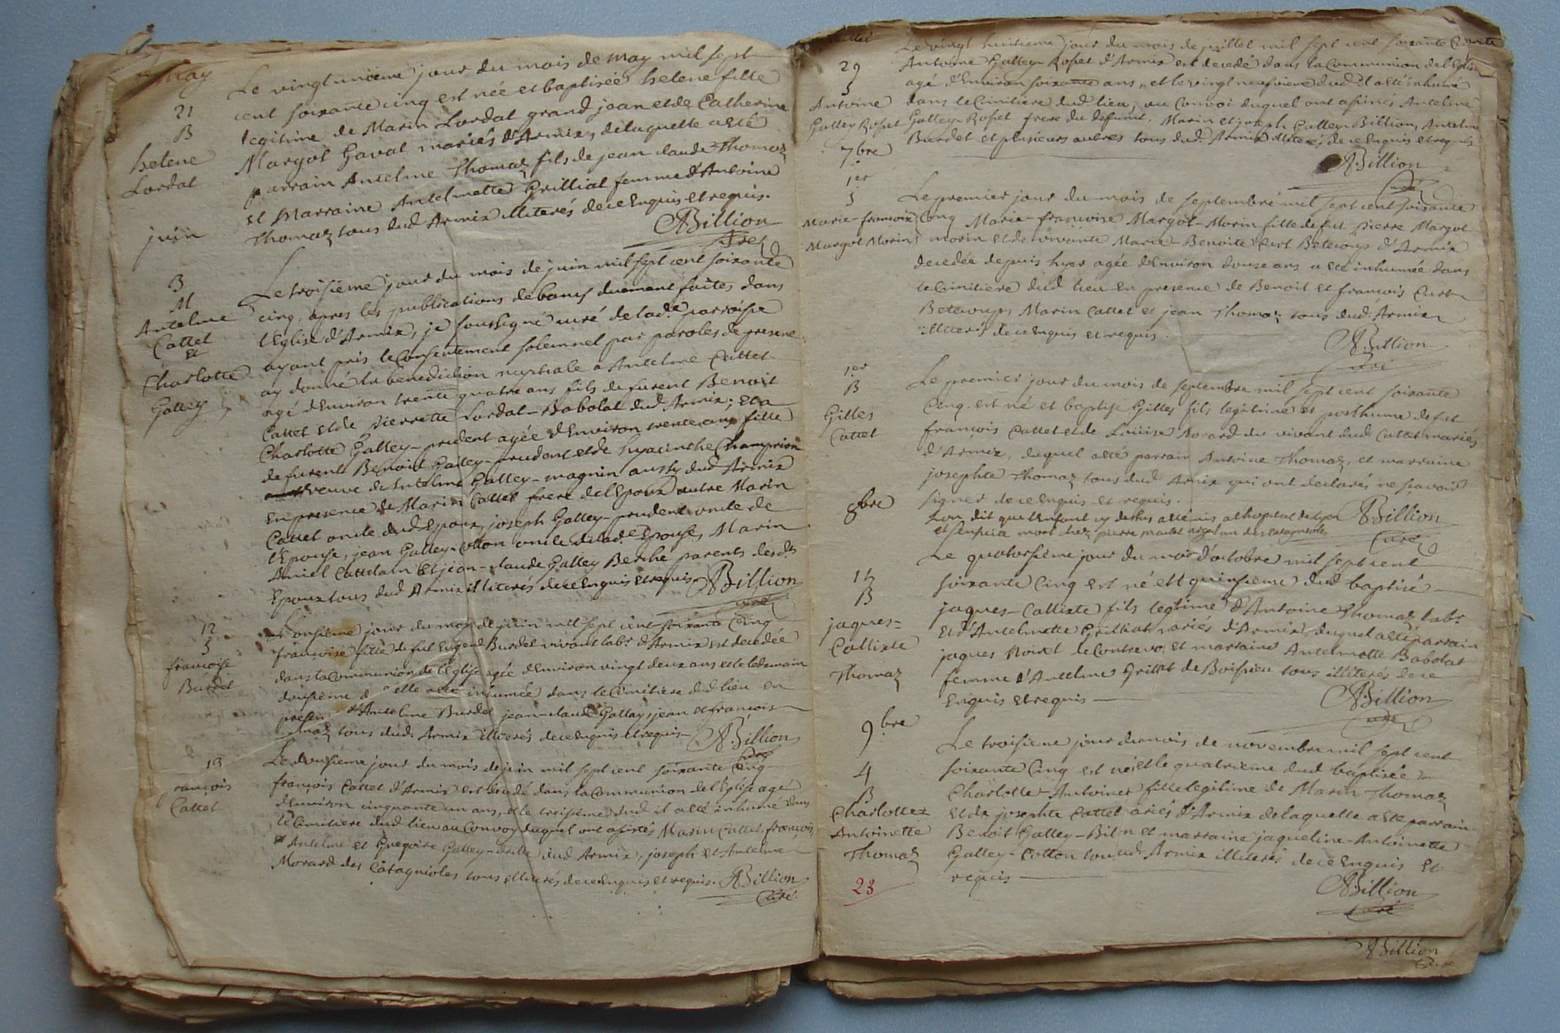 may
Le vingtunieme jour du mois de may mil sept
21
B
helene
Lordat
cent soixante cinq est née et baptisée helene fille
legitime de Marin Lordat grand jean et de Catherine
Margot Gavat mariés d'Armix, de laquelle a été
parrain Antelme Thomaz fils de jean claude Thomaz
et Marraine Antelmette Grilliat femme d'Antoine
Thomaz tous dud Armix illiterés de ce enquis et requis.
ABillion
Curé
juin
3
M
Antelme
Cattet
et
Charlotte
Galley
Le troisieme jour du mois de juin mil sept cent soixante
cinq, apres les publications de bancs duement faites dans
l'Eglise d'Armix, je soussigné curé de lad. parroisse
ayant pris le Consentement solemnel par paroles de present
ay donné la benediction nuptiale a Antelme Cattet
agé d'Environ trente quatre ans fils de furent Benoit
Cattet et de pierrette Lordat-Babolat dud Armix; et a
Charlotte Galley-prudent agée d'Environ trente cinq fille
de furent Benoit Galley-prudent et de hyacinthe Champrion
veuve de Antelme Galley-magnin aussy dud Armix
En presence de Marin Cattet frere de l'Epoux autre Marin
Cattet oncle dud Epoux, joseph Galley-prudent oncle de
l'Epouse, jean Galley-Cotton oncle de lade Epouse, Marin
Amiel Cattelain et jean-claude Galley Berche parents desds
Epoux tous dud Armix illiterés de ce enquis et requis ABillion
Curé
12
S
francoise
Burdet
Le onsieme jour du mois de juin mil sept cent soixante Cinq
francoise fille de fut Eugene Burdet vivant labr d'Armix est decedée
dans la Communion de l'Eglise agée d'Environ vingt deux ans et le lendemain
dousieme d elle a été inhumée dans le Cimitiere dud lieu en
d'Antelme Burdet jean-claude Galley, jean et francois
tous dud. Armix illiterés de ce enquis et requis ABillion
Curé
13
rançois
Cattet
Le dousieme jour du mois de juin mil sept cent soixante Cinq
françois Cattet d'Armix est decedé dans la Communion de l'Eglise agé
d'Environ cinquante un ans, et le treisieme dud il a été inhumé dans
le Cimitiere dud lieu au Convoy duquel ont assistés Marin Cattet, françois
Antelme et Gregoire Galley dud Armix, joseph et Antelme
Morard des Catagnioles tous illiterés de ce enquis et requis. ABillion
Curé
Le vingt huitieme jour du mois de juillet mil sept cent soixante Cinq
29
S
Antoine
Galley Roset
Antoine Galley-Roset d'Armix est decedé dans la Communion de l'Eglise
agé d'Environ soixante ans, et le vingt neufvieme dud il a été inhumé
dans le Cimitiere dud lieu, au Convoi duquel ont assistés Antelme
Galley-Roset frere du defunt, Marin et joseph Galley-Billion, Antelme
Burdet et plusieurs autres tous dud. Armix illiterés de ce enquis et requis
ABillion
Curé
7bre
1er
S
Marie-francoise
Margot Morin
Le premier jour du mois de septembre mil sept cent soixante
Cinq Marie-francoise Margot-Morin fille de fut pierre Margot
morin et de vivante Marie-Benoite Curt Beteoup d'Armix
decedée depuis hyer agée d'Environ douse ans a été inhumée dans
le Cimitiere dud lieu en presence de Benoit et françois Curt
Beteoup, Marin Cattet et jean Thomaz tous dud. Armix
illiterés de ce enquis et requis.
ABillion
Curé
1er
B
Gilles
Cattet
Le premier jour du mois de septembre mil sept cent soixante
Cinq est né et baptisé Gilles fils legitime et posthume de fut
françois Cattet et de Louise Morard du vivant dud Cattet mariés
d'Armix, duquel a été parrain Antoine Thomaz, et marraine
josephte Thomaz tous dud Armix qui ont declarés ne sçavoir
signer de ce enquis et requis.
ABillion
Curé
8bre
14
B
jaques-
Callixte
Thomaz
Le quatorsieme jour du mois d'octobre mil sept cent
soixante Cinq est né et le quinsieme dud baptisé
jaques-Callixte fils legitime d'Antoine Thomaz labr
et d'Antelmette Grilliat mariés d'Armix duquel a été parrain
jaques Noiret de Contrevo, et marraine Antelmette Babolat
femme d'Antelme Grillat de Boissieu tous illiterés de ce
Enquis et requis
ABillion
Curé
9bre
4
B
Charlotte
Antoinette
Thomaz
23
Le troisieme jour du mois de novembre mil sept cent
soixante Cinq est née et le quatrieme dud baptisée
Charlotte Antoinette fille legitime de Marin Thomaz
et de josephte Cattet mariés d'Armix de laquelle a été parrain
Benoit Galley-Billion et marraine jaqueline-Antoinette
Galley-Cotton tous dud Armix illiterés de ce Enquis et
requis
ABillion
Curé
ABillion